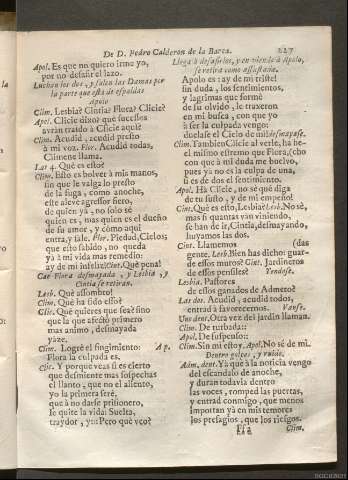 De D. Pedro Calderon de la Barca.
227
Apol. Es que no quiero irme yo,
por no desasir el lazo.
Luchan los dos, y salen las Damas por
la parte que està de espaldas
Apolo
Clim. Lesbia? Cintia? Flora? Clicie?
Apol. Clicie dixo? què sucessos
avràn traìdo à Clicie aqui?
Clim. Acudid, acudid presto
à mi voz. Flor. Acudid todas,
Climene llama.
Las 4. Què es esto?
Clim. Esto es bolver à mis manos,
sin que le valga lo presto
de la fuga, como anoche,
este aleve agressor fiero,
de quien yà, no solo sè
quien es, mas quien es el dueño
de su amor, y còmo aqui
entra, y sale. Flor. Piedad, Cielos;
que esto sabido, no queda
yà à mi vida mas remedio:
ay de mi infeliz! Cint. Què pena!
Cae Flora desmayada, y Lesbia, y
Cintia se retiran.
Lesb. Què assombro!
Clim. Què ha sido esto?
Clic. Què quieres que sea? sino
que la que afectò primero
mas animo, desmayada
yaze.
Clim. Logrè el fingimiento: Ap.
Flora la culpada es.
Clic. Y porque veas si es cierto
que desmiente mas sospechas
el llanto, que no el aliento,
yo la primera serè,
que à no darse prisionero,
se quite la vida: Suelta,
traydor, y::: Pero què veo?
Llega à desasirlos, y en viendo à Apolo,
se retira como assustada.
Apolo es: ay de mi triste!
sin duda, los sentimientos,
y lagrimas que formè
de su olvido, le truxeron
en mi busca, con que yo
à ser la culpada vengo:
duelase el Cielo de mi! desmayase.
Clim. Tambien Clicie al verle, ha hecho
el mismo estremo que Flora,
con que à mi duda me buelvo,
pues yà no es la culpa de una,
si es de dos el sentimiento.
Apol. Hà Clicie, no sè què diga
de tu susto, y de mi empeño!
Cint. Què es esto, Lesbia? Lesb. No sè,
mas si quantas van viniendo,
se han de ir, Cintia, desmayando,
huyamos las dos.
Cint. Llamemos (das
gente. Lesb. Bien has dicho: guar-
de essos muros? Cint. Jardineros
de essos pensiles? Vendose.
Lesbia. Pastores
de essos ganados de Admeto?
Las dos. Acudid, acudid todos,
entrad à favorecernos. Vanse.
Uno dent. Otra vez del jardin llaman.
Clim. De turbada::
Apol. De suspenso::
Clim. Sin mi estoy. Apol. No sè de mi.
Dentro golpes, y ruido.
Adm. dent. Yà que à la noticia vengo
del escandalo de anoche,
y duran todavia dentro
las voces, romped las puertas,
y entrad conmigo, que menos
importan yà en mis temores
los presagios, que los riesgos.
Ff 2
Clim.